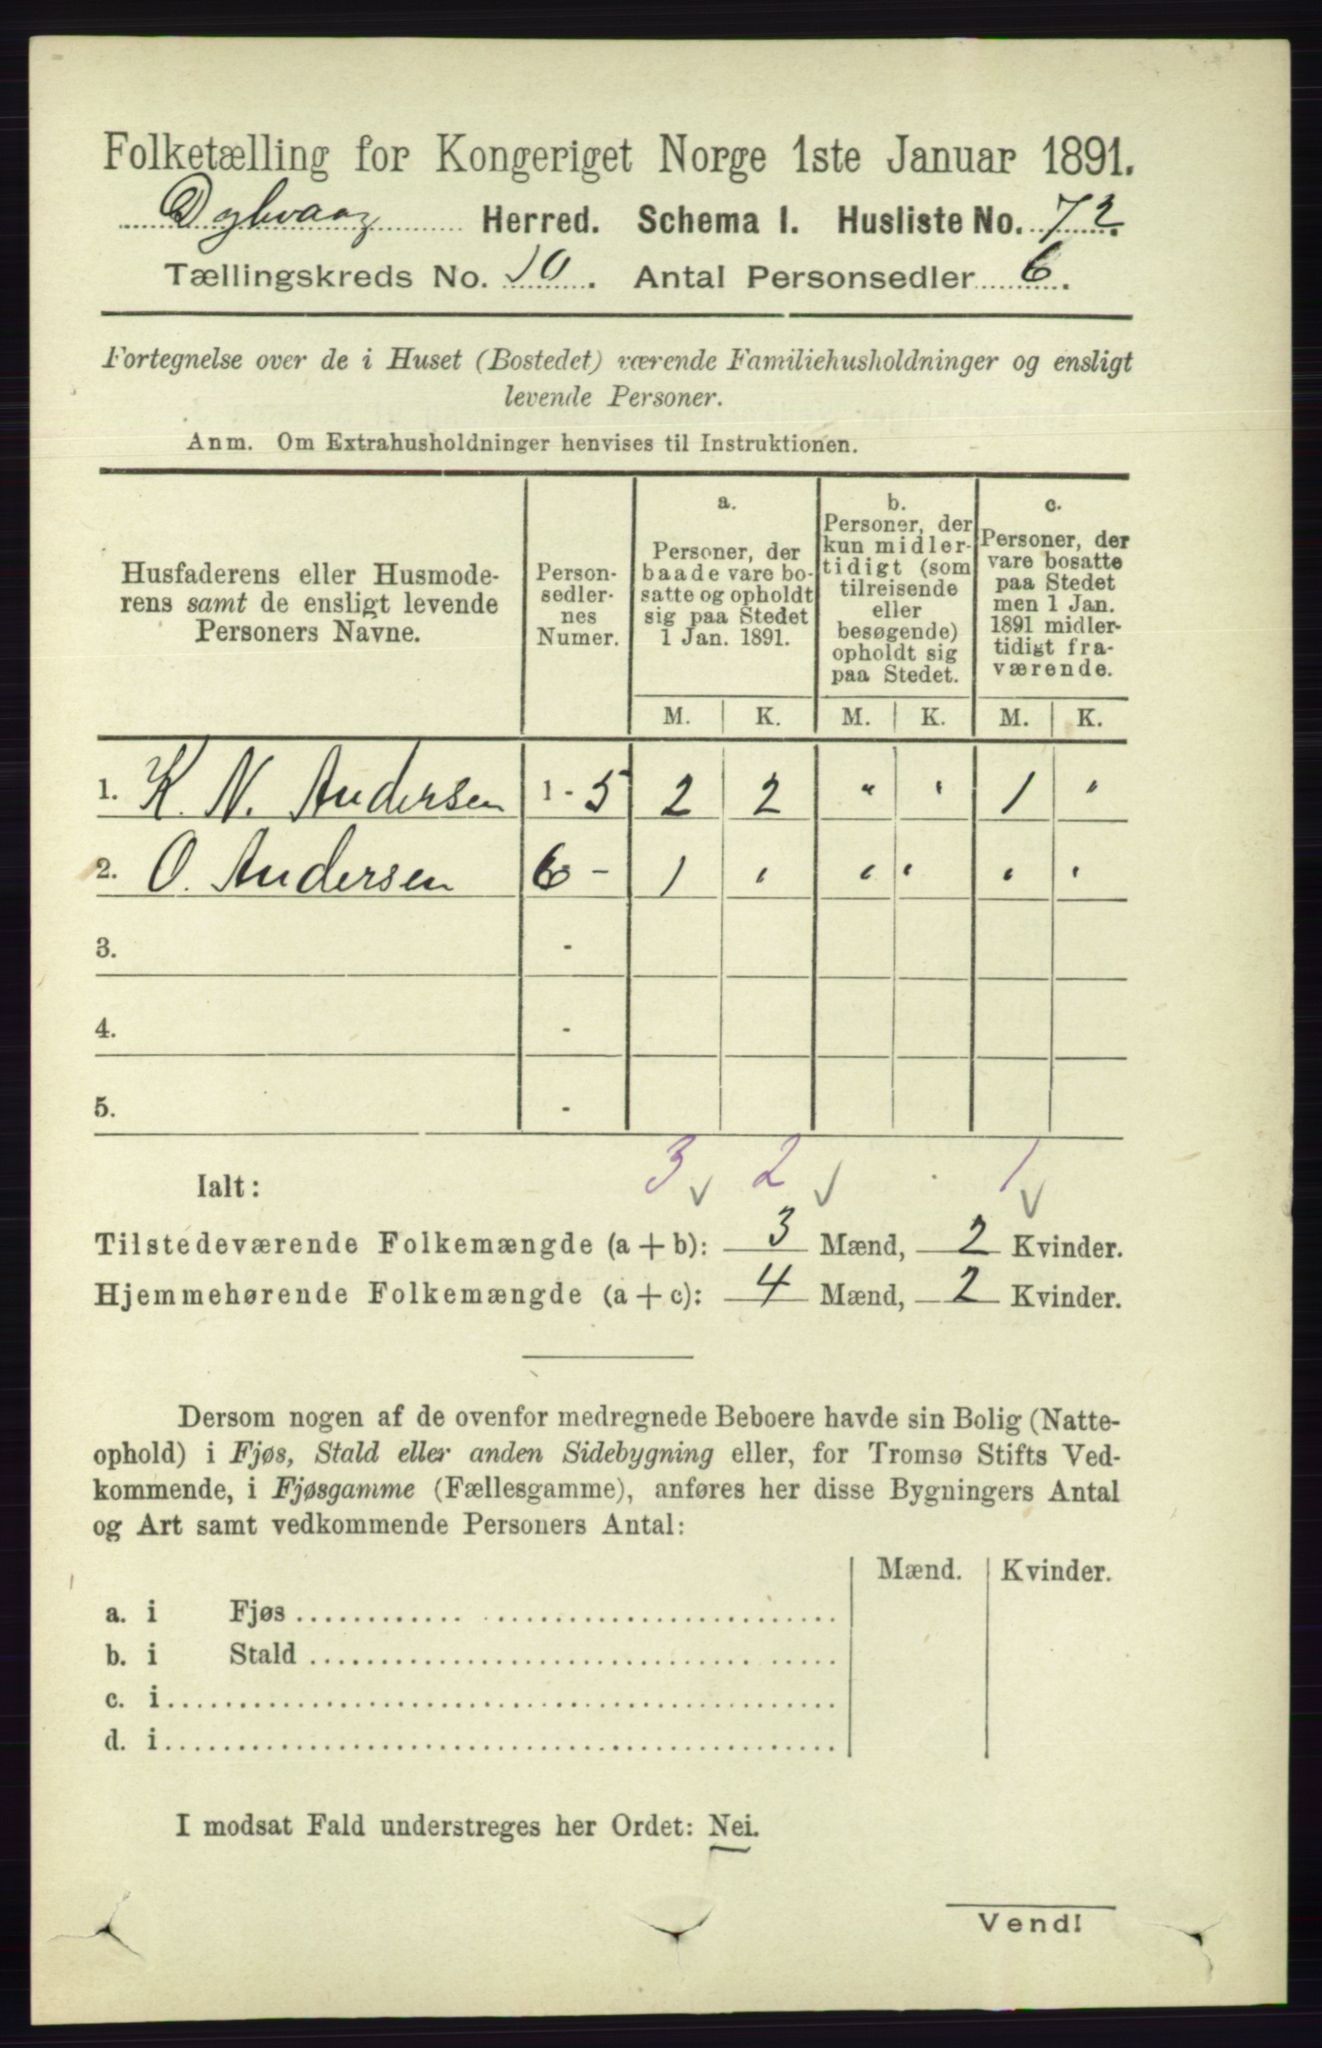 Folketælling for Kongeriget Norge 1ste Januar 1891.
Dybvaag Herred. Schema I. Husliste No. 72.
Tællingskreds No. 10. Antal Personsedler 6.
Fortegnelse over de i Huset (Bostedet) værende Familiehusholdninger og ensligt
levende Personer.
Anm. Om Extrahusholdninger henvises til Instruktionen.
Husfaderens eller Husmode-
rens samt de ensligt levende
Personers Navne.
Person-
sedler-
nes
Numer.
a.
Personer, der
baade vare bo-
satte og opholdt
sig paa Stedet
1 Jan. 1891.
b.
Personer, der
kun midler-
tidigt (som
tilreisende
eller
besøgende)
opholdt sig
paa Stedet.
c.
Personer, der
vare bosatte
paa Stedet
men 1 Jan.
1891 midler-
tidigt fra-
værende.
M. K. M. K. M. K.
1. K. N. Andersen 1 - 5 2 2 " " 1 "
2. O. Andersen 6 - 1 " " " " "
3. -
4. -
5. -
Ialt: 3 2 1
Tilstedeværende Folkemængde (a + b): 3 Mænd, 2 Kvinder.
Hjemmehørende Folkemængde (a + c): 4 Mænd, 2 Kvinder.
Dersom nogen af de ovenfor medregnede Beboere havde sin Bolig (Natte-
ophold) i Fjøs, Stald eller anden Sidebygning eller, for Tromsø Stifts Ved-
kommende, i Fjøsgamme (Fællesgamme), anføres her disse Bygningers Antal
og Art samt vedkommende Personers Antal:
Mænd. Kvinder.
a. i Fjøs
b. i Stald
c. i
d. i
I modsat Fald understreges her Ordet: Nei.
Vend!